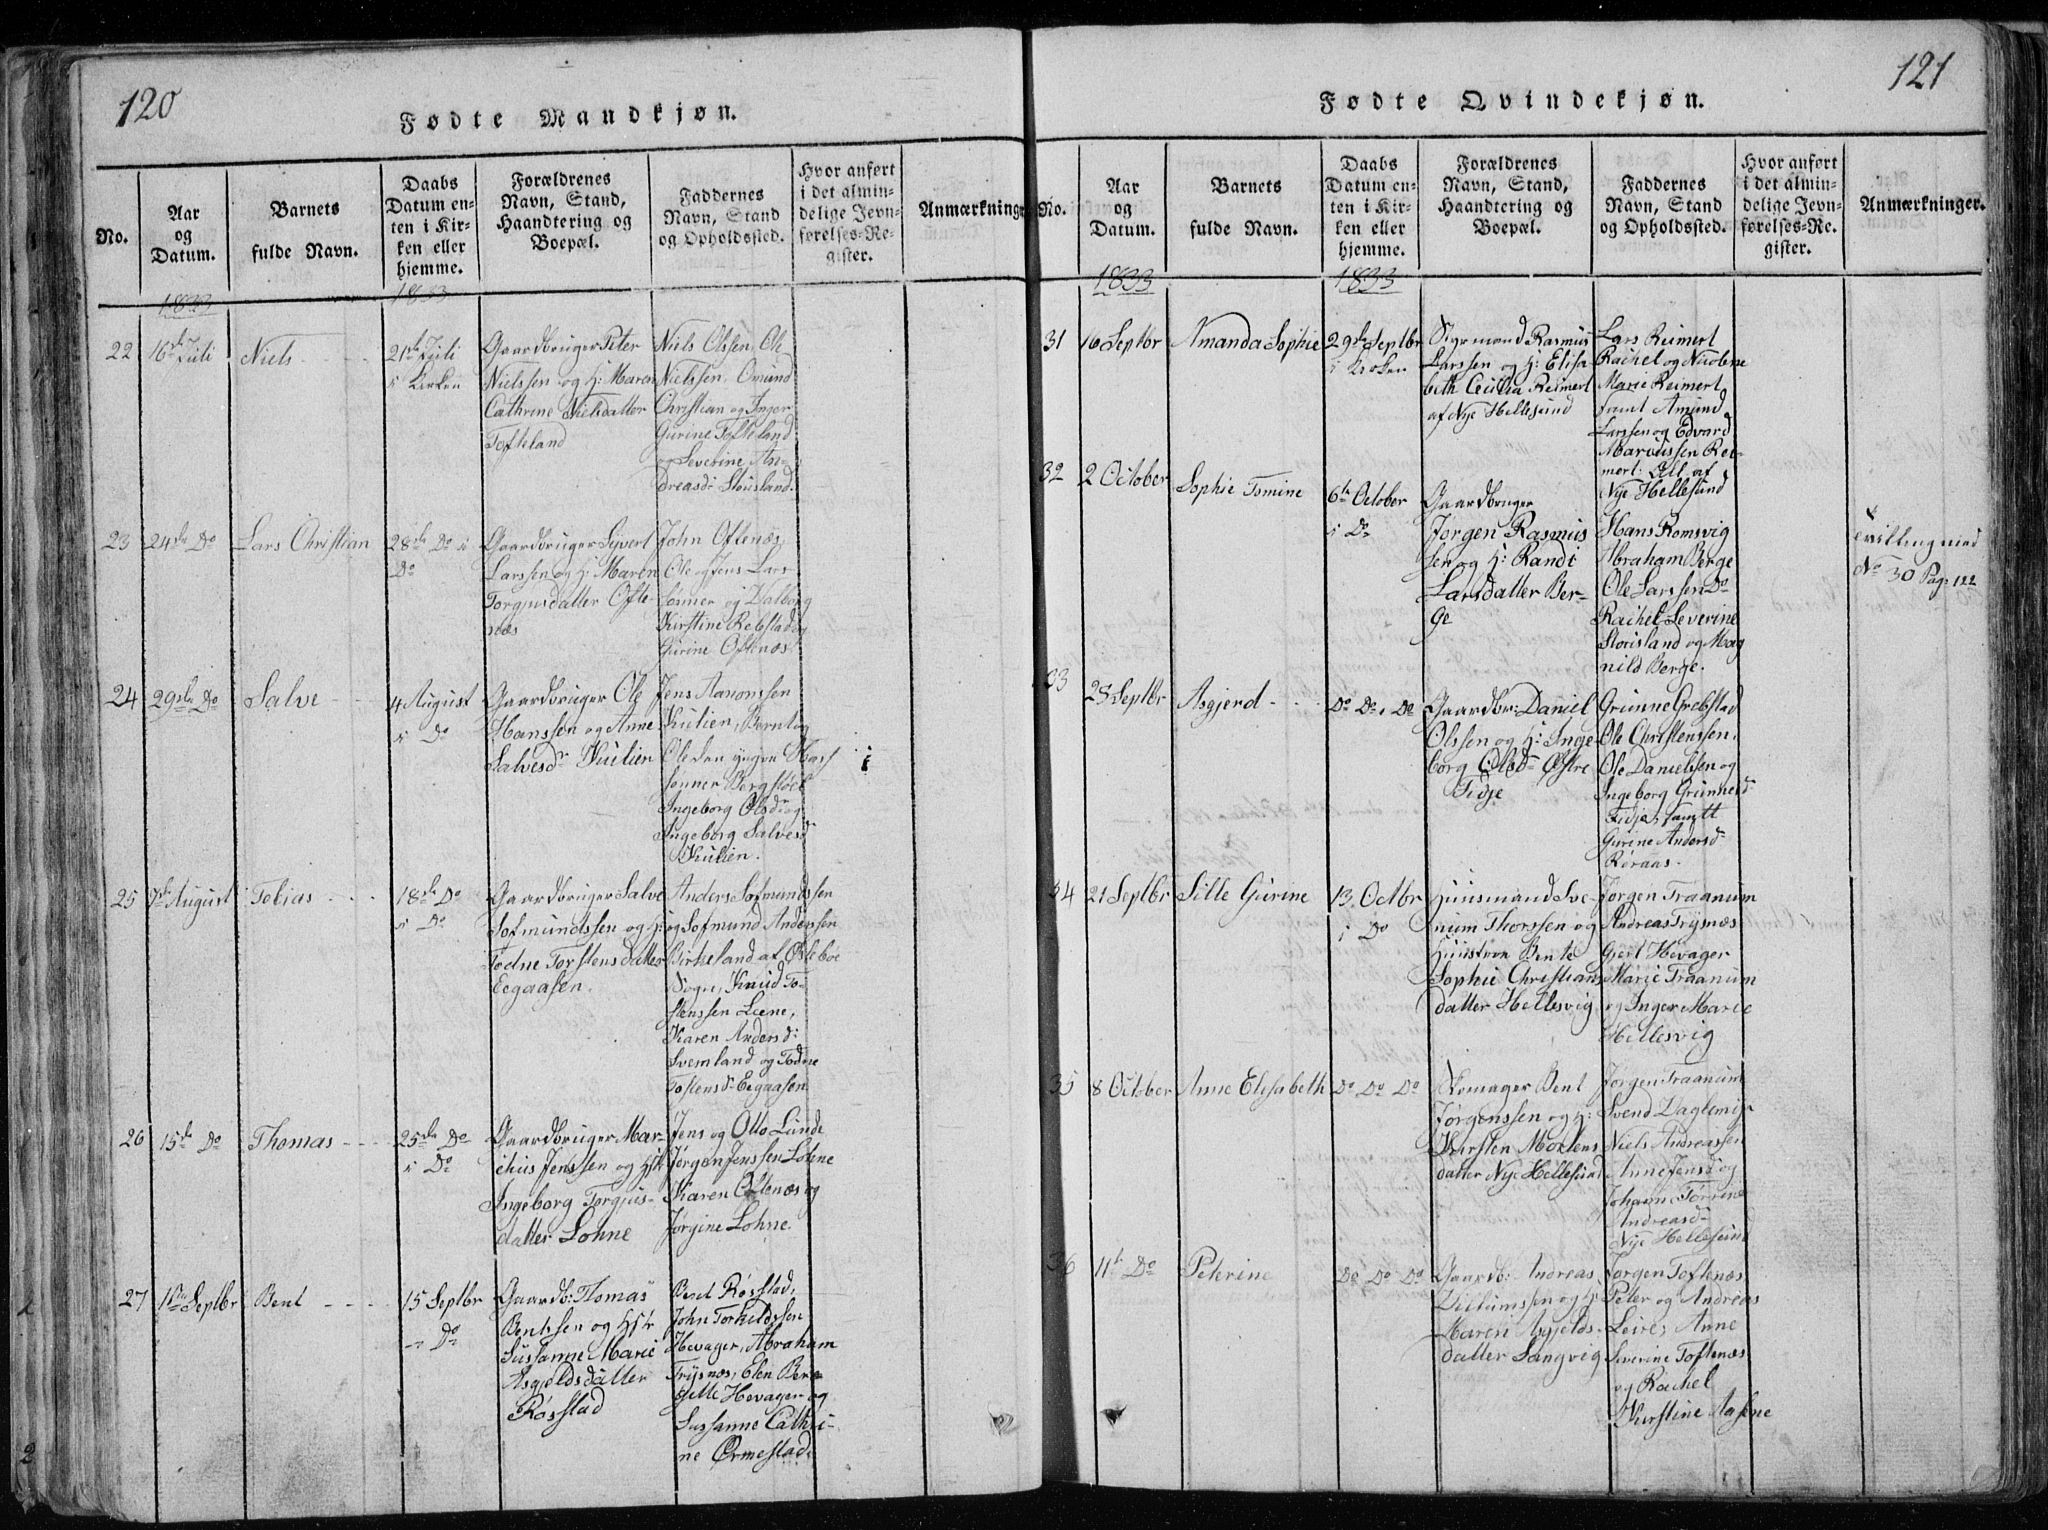 120
Fødte Mandkjøn.
No.
Aar
og
Datum.
Barnets
fulde Navn.
Daabs
Datum en-
ten i Kir-
ken eller
hjemme.
Forældrenes
Navn, Stand,
Haandtering og
Boepæl.
Faddernes
Navn, Stand
og Opholdssted.
Hvor anført
i det almin-
delige Jevn-
førelses-Re-
gister.
Anmærkninger
1833
1833
22
16de Juli
Niels
21de Juli
i Kirken
Gaardbruger Peter
Nielssen og H: Maren
Cathrine Nielsdatter
Tofteland
Niels Olssen, Ole
Nielssen, Omund
Christian og Inger
Gurine Tofteland
og Severine An-
dreasd: Stousland.
23
24de Do
Lars Christian
28de Do i
Do
Gaardbruger Sijvert
Larssen og H: Maren
Torgjusdatter Ofte-
næs
John Oftenæs,
Ole og Jens Lars
sønner og Valborg
Kirstine Rebstad og
Gurine Oftenæs
24
29de Do
Salve
4 August
i Do
Gaardbruger Ole
Hanssen og Anne
Salvesdr Kulien
Jens Aanonssen
Kulien, Bernt og
Ole den yngre Hans
sønner Bergstøel
Ingeborg Olsdr og
Ingeborg Salvesd
Kulien.
25
7de August
Tobias
18de Do
i Do
Gaardbruger Salve
Sofmundssen og H:
Todne Torstensdatter
Eegaasen.
Anders Sofmundssen
og Sofmund Anderssen
Birkeland af Øslebøe
Sogn, Knud To-
stenssen Leene,
Karen Andersd:
Svemland og Todne
Tostensdr Eegaasen
26
15de Do
Thomas
25de Do
i Do
Gaardbruger Mar-
chus Jenssen og Hstr
Ingeborg Torgjus-
datter Lohne
Jens og Otto Lunde
Jørgen Jenssen Lohne
Karen Oftenæs og
Jørgine Lohne.
27
1ste Septbr
Bent
15 Septbr
i Do
Gaardb: Thomas
Bentssen og Hstr
Sussanne Marie
Asgjeldsdatter
Røsstad
Bent Røsstad,
John Torkildssen
Hevager, Abraham
Trysnæs, Elen Ber-
gitte Hevager og
Sussanne Cathri-
ne Ørmestad.
121
Fødte Qvindekjøn.
No.
Aar
og
Datum.
Barnets
fulde Navn.
Daabs
Datum en-
ten i Kir-
ken eller
hjemme.
Forældrenes
Navn, Stand,
Haandtering og
Boepæl.
Faddernes
Navn, Stand
og Opholdssted.
Hvor anført
i det almin-
delige Jevn-
førelses-Re-
gister.
Anmærkninger.
1833
1833
31
16 Septbr
Amanda Sophie
29de Septbr
i Kirken
Styrmand Rasmus
Larssen og H: Elisa
beth Cecilia Reimert
af Nye Hellesund
Lars Reimert
Rachel og Nicoline
Marie Reimert
samt Amund
Larssen og Edvard
Marcussen Rei-
mert. All af
Nye Hellesund
32
2 October
Sophie Tomine
6te October
i Do
Gaardbruger
Jørgen Rasmus
sen og H: Randi
Larsdatter Ber-
ge
Hans Romsvig
Abraham Berge
Ole Larssen Do
Rachel Severine
Stousland og Mag
nild Berge.
Tvilling med
No 30 Pag: 122
33
28 Septbr
Asgjerd
Do Do i Do
Gaardbr: Daniel
Olssen og H: Inge
borg Olsdr Østre
Tidje
Grunne Grebstad
Ole Christenssen,
Ole Danielssen og
Ingeborg Grunnesd
Tidje, samt
Gurine Andersdr
Røraas.
34
21 Septbr
Sille Gurine
13 Octbr
i Do
Huusmand Sve-
num Thorssen og
Huustroe Bente
Sophie Christians
datter Hellesvig
Jørgen Traanum
Andreas Trysnæs
Gjert Hevager
Marie Traanum
og Inger Marie
Hellesvig
35
8 October
Anne Elisabeth
Do Do Do
Skomager Bent
Jørgenssen og H:
Kirsten Mortens
datter Nye Hellesund
Jørgen Traanum
Svend Daglemis
Niels Andreassen
Anne Jensd og
Johanne Torrine
Andreasdr
Nye Hellesund
36
11te Do
Peterine
Do Do Do
Gaardb: Andreas
Villumssen og H
Maren Asgjelds-
datter Langvig
Jørgen Toftenæs
Peter og Andreas
Leire, Anne
Severine Toftenæs
og Rachel
Kirstine Aasene